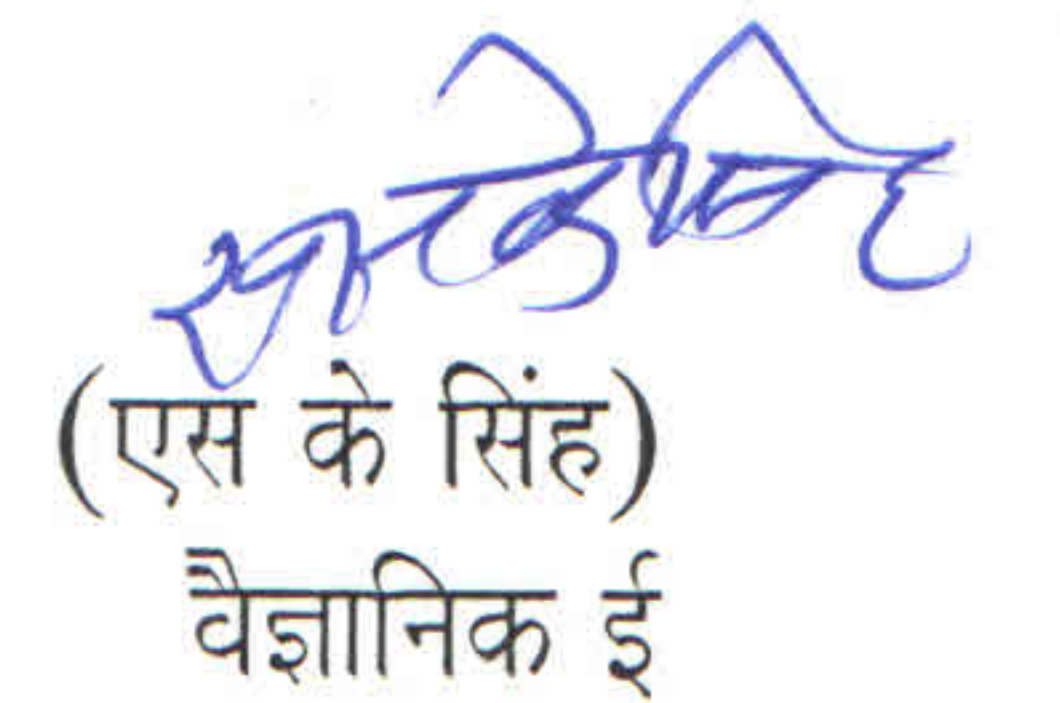 (एस के सिंह)
वैज्ञानिक ई